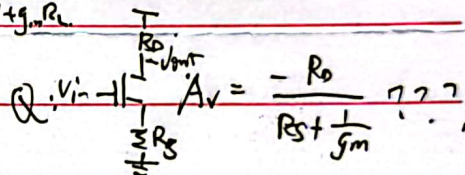 +gmRL
RD
Vout
Q: Vin Av = -RD / (RS + 1/gm) ???
RS